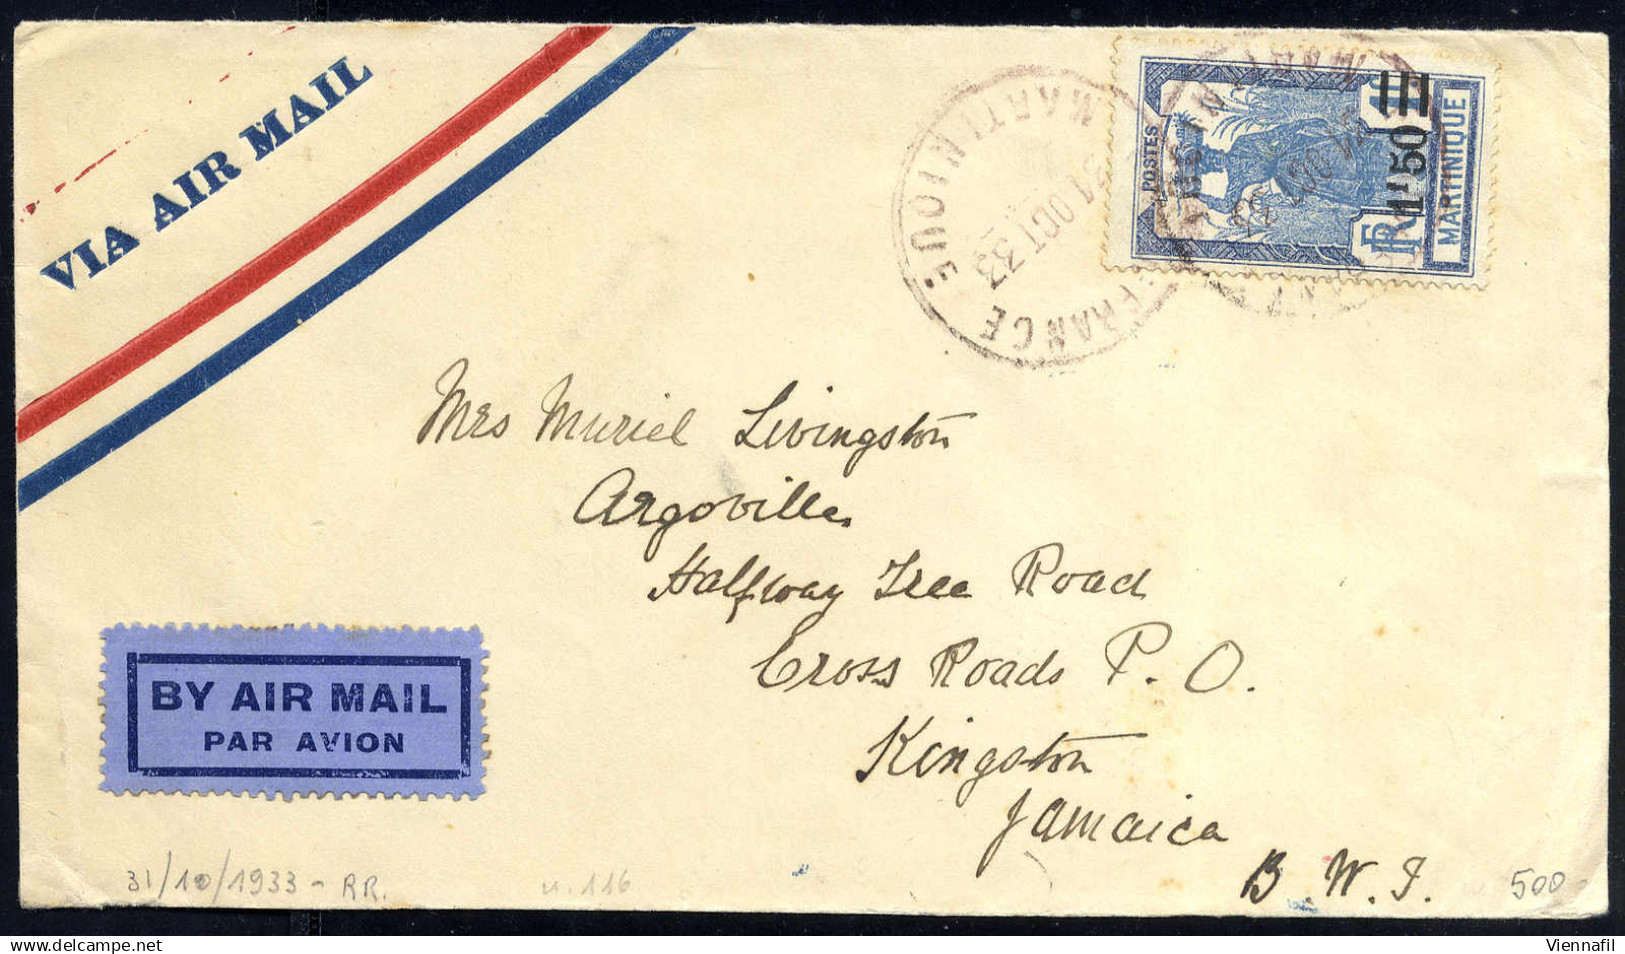 VIA AIR MAIL
POSTES
MARTINIQUE
1F50
5FR
MARTINIQUE
31 OCT 33
FRANCE
Mrs Muriel Livingston
Argoville
Halfway Tree Road
Cross Roads P. O.
Kingston
Jamaica
B. W. I.
BY AIR MAIL
PAR AVION
31/10/1933 - RR.
n. 116
500
Viennafil